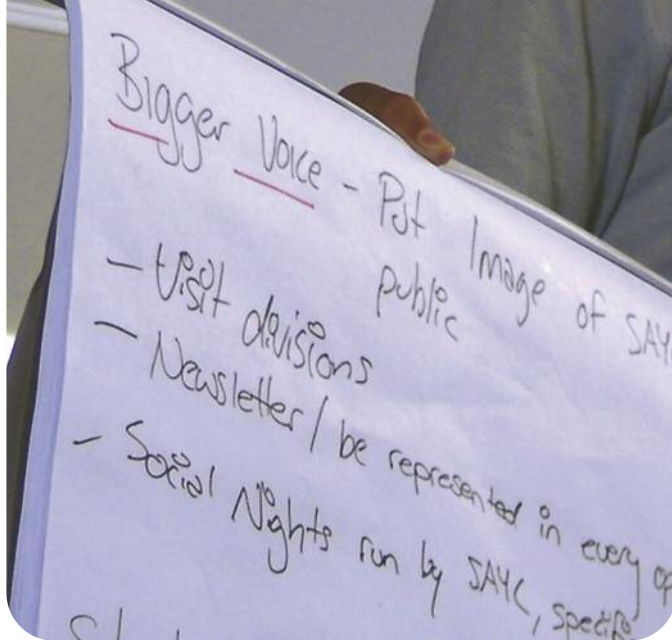 Bigger Voice - Put Image of SAYC
public
- Visit divisions
- Newsletter / be represented in every
- Social Nights run by SAYC, specific